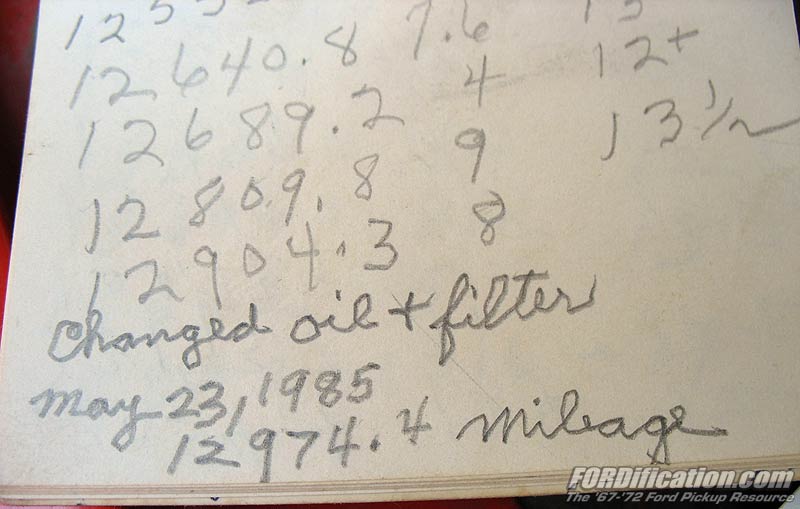 12640.8 7.6 12+
12689.2 4 13 1/2
12809.8 9
12904.3 8
changed oil + filter
may 23, 1985
12974.4 mileage
FORDification.com
The '67-'72 Ford Pickup Resource